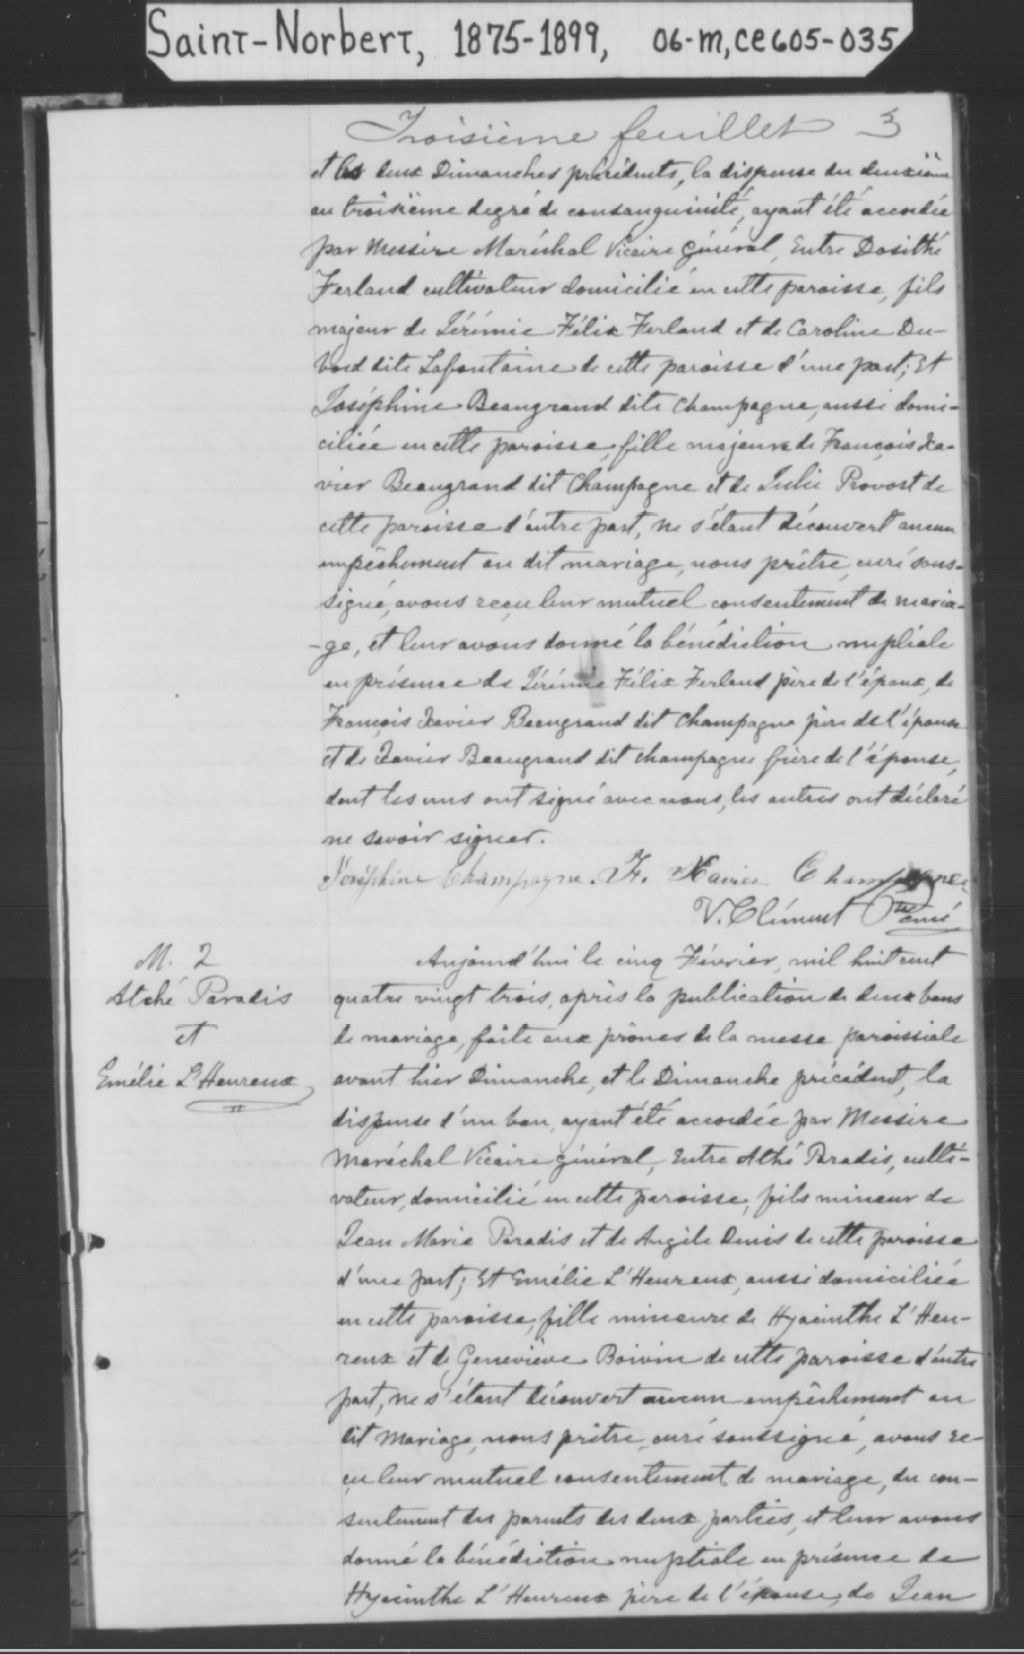 Saint-Norbert, 1875-1899, 06-M, CE605-035
Troisième feuillet 3
et les deux Dimanches précédents, la dispense du deuxième
au troisième degré de consanguinité, ayant été accordée
par Messire Maréchal Vicaire général, Entre Dosithé
Ferland cultivateur domicilié en cette paroisse, fils
majeur de Jérémie Félix Ferland et de Caroline Du-
bord dite Lafontaine de cette paroisse d'une part; Et
Joséphine Beaugrand dite Champagne, aussi domi-
ciliée en cette paroisse, fille majeure de François Xa-
vier Beaugrand dit Champagne et de Julie Provost de
cette paroisse d'autre part, ne s'étant découvert aucun
empêchement au dit mariage, nous prêtre, curé sous-
signé, avons reçu leur mutuel consentement de maria-
-ge, et leur avons donné la bénédiction nuptiale
en présence de Jérémie Félix Ferland père de l'époux, de
François Xavier Beaugrand dit Champagne père de l'épouse
et de Xavier Beaugrand dit champagne frère de l'épouse,
dont les uns ont signé avec nous, les autres ont déclaré
ne savoir signer.
Joséphine Champagne. F. Xavier Champagne
V. Clément Ptre curé
M. 2
Athé Paradis
et
Emélie L'Heureux
Aujourd'hui le cinq Février, mil huit cent
quatre vingt trois, après la publication de deux bans
de mariage, faite aux prônes de la messe paroissiale
avant hier Dimanche, et le Dimanche précédent, la
dispense d'un ban, ayant été accordée par Messire
Maréchal Vicaire général, Entre Athé Paradis, culti-
vateur, domicilié en cette paroisse, fils mineur de
Jean Marie Paradis et de Angèle Denis de cette paroisse
d'une part; Et Emélie L'Heureux, aussi domiciliée
en cette paroisse, fille mineure de Hyacinthe L'Heu-
reux et de Geneviève Boivin de cette paroisse d'autre
part, ne s'étant découvert aucun empêchement au
dit Mariage, nous prêtre, curé soussigné, avons re-
çu leur mutuel consentement de mariage, du con-
sentement des parents des deux parties, et leur avons
donné la bénédiction nuptiale en présence de
Hyacinthe L'Heureux père de l'épouse, de Jean